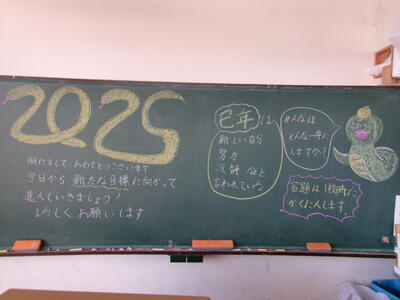 2025
明けまして おめでとうございます
今日から 新たな目標 に向かって
進んでいきましょう!
よろしく お願いします
巳年 は
新しい自分
努力
冷静 など
言われている
みんなは
どんな一年に
しますか?
宿題は 1校時に
かくにんします。